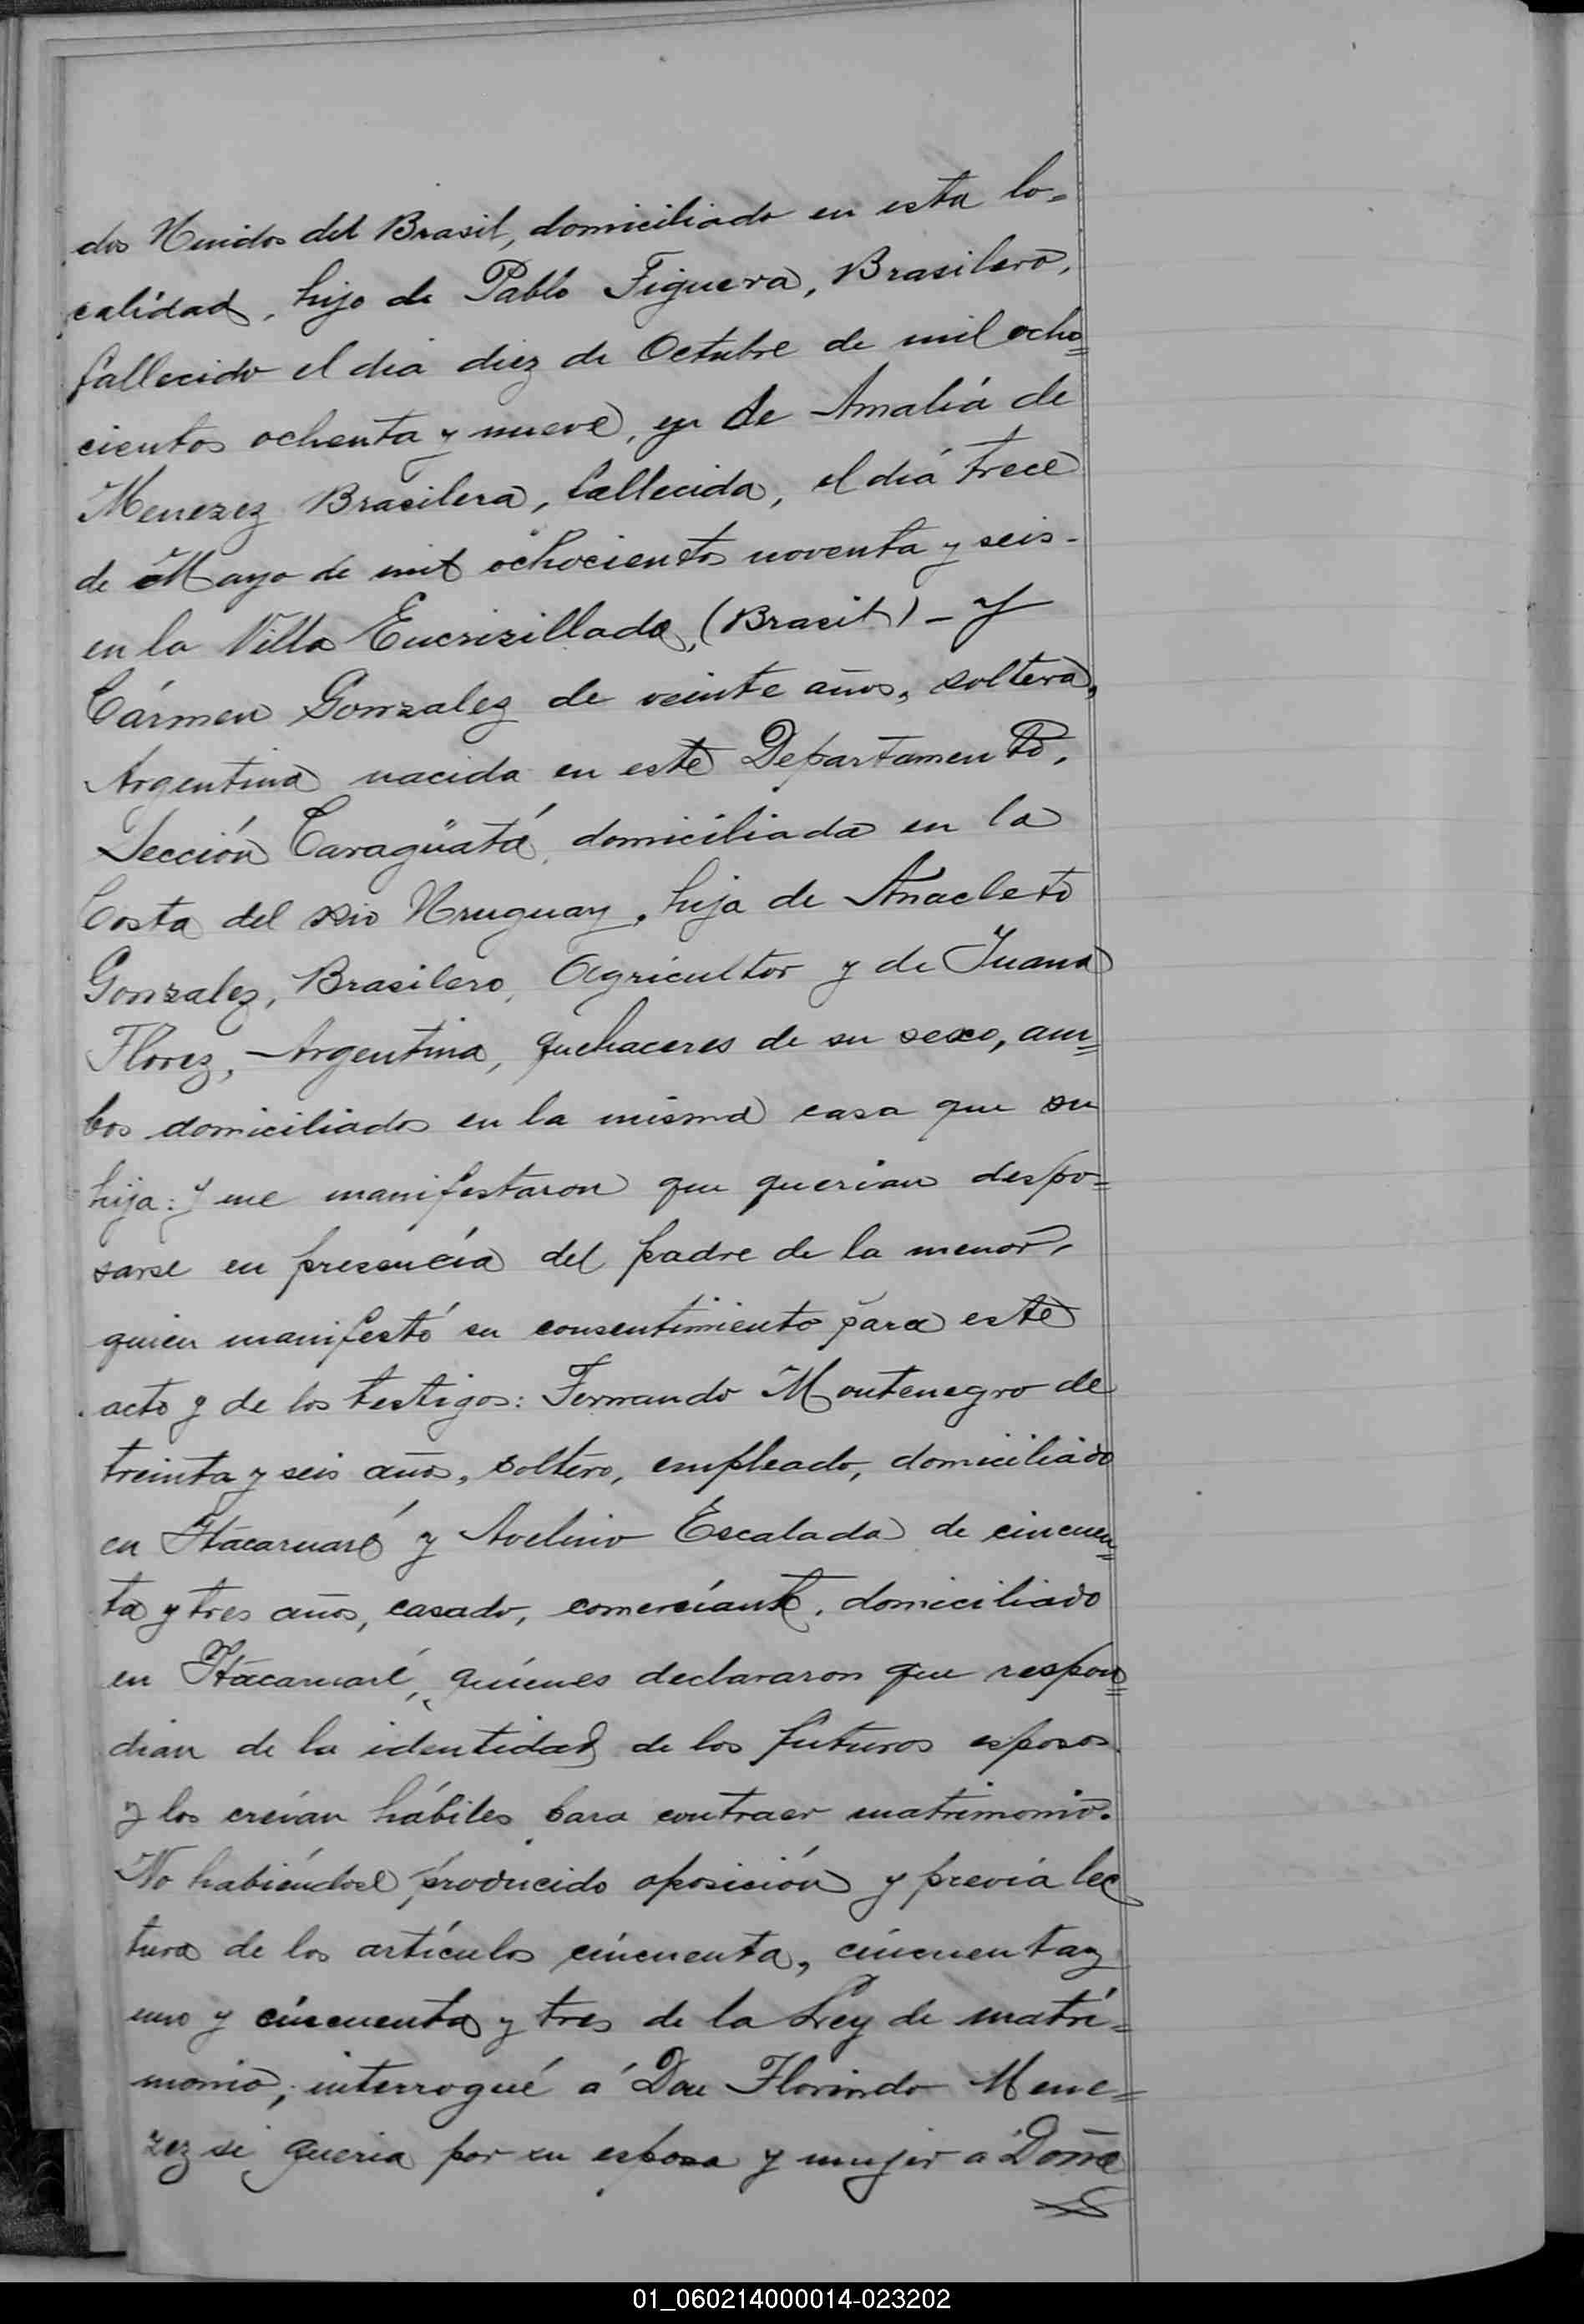 dos Unidos del Brasil, domiciliado en esta lo=
calidad, hijo de Pablo Figuera, Brasilero,
fallecido el dia diez de Octubre de mil ocho=
cientos ochenta y nueve, y de Amalia de
Menezez Brasilera, fallecida, el dia trece
de Mayo de mil ochocientos noventa y seis-
en la Villa (Brasil) - y
Cármen Gonzalez de veinte años, soltera,
Argentina nacida en este Departamento,
Sección Caragüatá, domiciliada en la
Costa del rio Uruguay, hija de Anacleto
Gonzalez, Brasilero, Agricultor y de Juana
Florez, Argentina, quehaceres de su sexo, am=
bos domiciliados en la misma casa que su
hija: y me manifestaron que querian despo=
sarse en presencia del padre de la menor,
quien manifestó su consentimiento para este
acto y de los testigos: Fernando Montenegro de
treinta y seis años, soltero, empleado, domiciliado
en Itacaruaré y Avelino Escalada de cincuen=
ta y tres años, casado, comerciante, domiciliado
en Itacaruaré, quienes declararon que respon=
dian de la identidad de los futuros esposos
y los creían hábiles para contraer matrimonio.
No habiéndose producido oposición y previa lec
tura de los artículos cincuenta, cincuenta y
uno y cincuenta y tres de la Ley de matri=
monio; interrogué á Don Florindo Mene=
zez si queria por su esposa y mujer a Doña
01_060214000014-023202